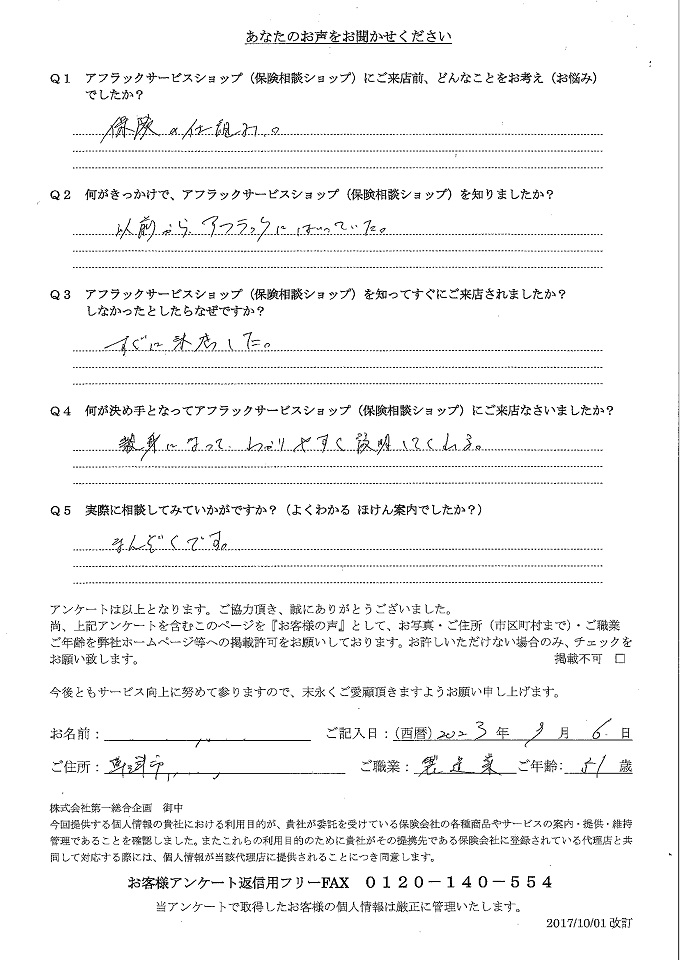 あなたのお声をお聞かせください
Q1 アフラックサービスショップ(保険相談ショップ)にご来店前、どんなことをお考え(お悩み)
でしたか?
保険の仕組み。
Q2 何がきっかけで、アフラックサービスショップ(保険相談ショップ)を知りましたか?
以前から、アフラックにはいっていた。
Q3 アフラックサービスショップ(保険相談ショップ)を知ってすぐにご来店されましたか?
しなかったとしたらなぜですか?
すぐに来店した。
Q4 何が決め手となってアフラックサービスショップ(保険相談ショップ)にご来店なさいましたか?
親身になって、わかりやすく説明してくれる。
Q5 実際に相談してみていかがですか?(よくわかる ほけん案内でしたか?)
まんぞくです。
アンケートは以上となります。ご協力頂き、誠にありがとうございました。
尚、上記アンケートを含むこのページを『お客様の声』として、お写真・ご住所(市区町村まで)・ご職業
ご年齢を弊社ホームページ等への掲載許可をお願いしております。お許しいただけない場合のみ、チェックを
お願い致します。 掲載不可 □
今後ともサービス向上に努めて参りますので、末永くご愛顧頂きますようお願い申し上げます。
お名前: ご記入日:(西暦)2023年 9月 6日
ご住所: 市 ご職業:製造業 ご年齢:51歳
株式会社第一総合企画 御中
今回提供する個人情報の貴社における利用目的が、貴社が委託を受けている保険会社の各種商品やサービスの案内・提供・維持
管理であることを確認しました。またこれらの利用目的のために貴社がその提携先である保険会社に登録されている代理店と共
同して対応する際には、個人情報が当該代理店に提供されることにつき同意します。
お客様アンケート返信用フリーFAX 0120-140-554
当アンケートで取得したお客様の個人情報は厳正に管理いたします。
2017/10/01 改訂